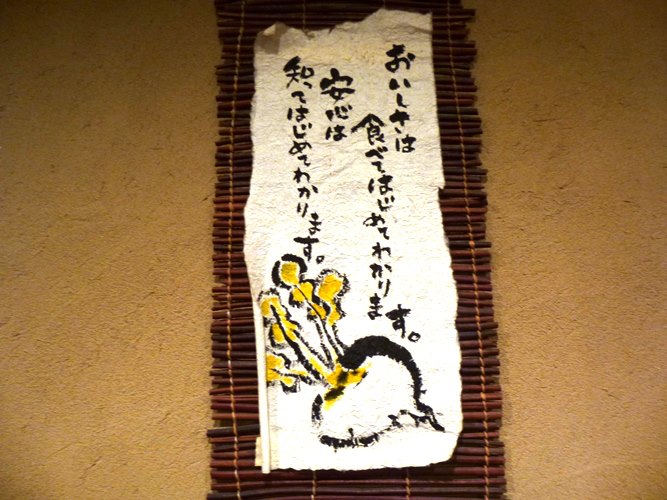 おいしさは
食べてはじめてわかります。
安心は
知ってはじめてわかります。